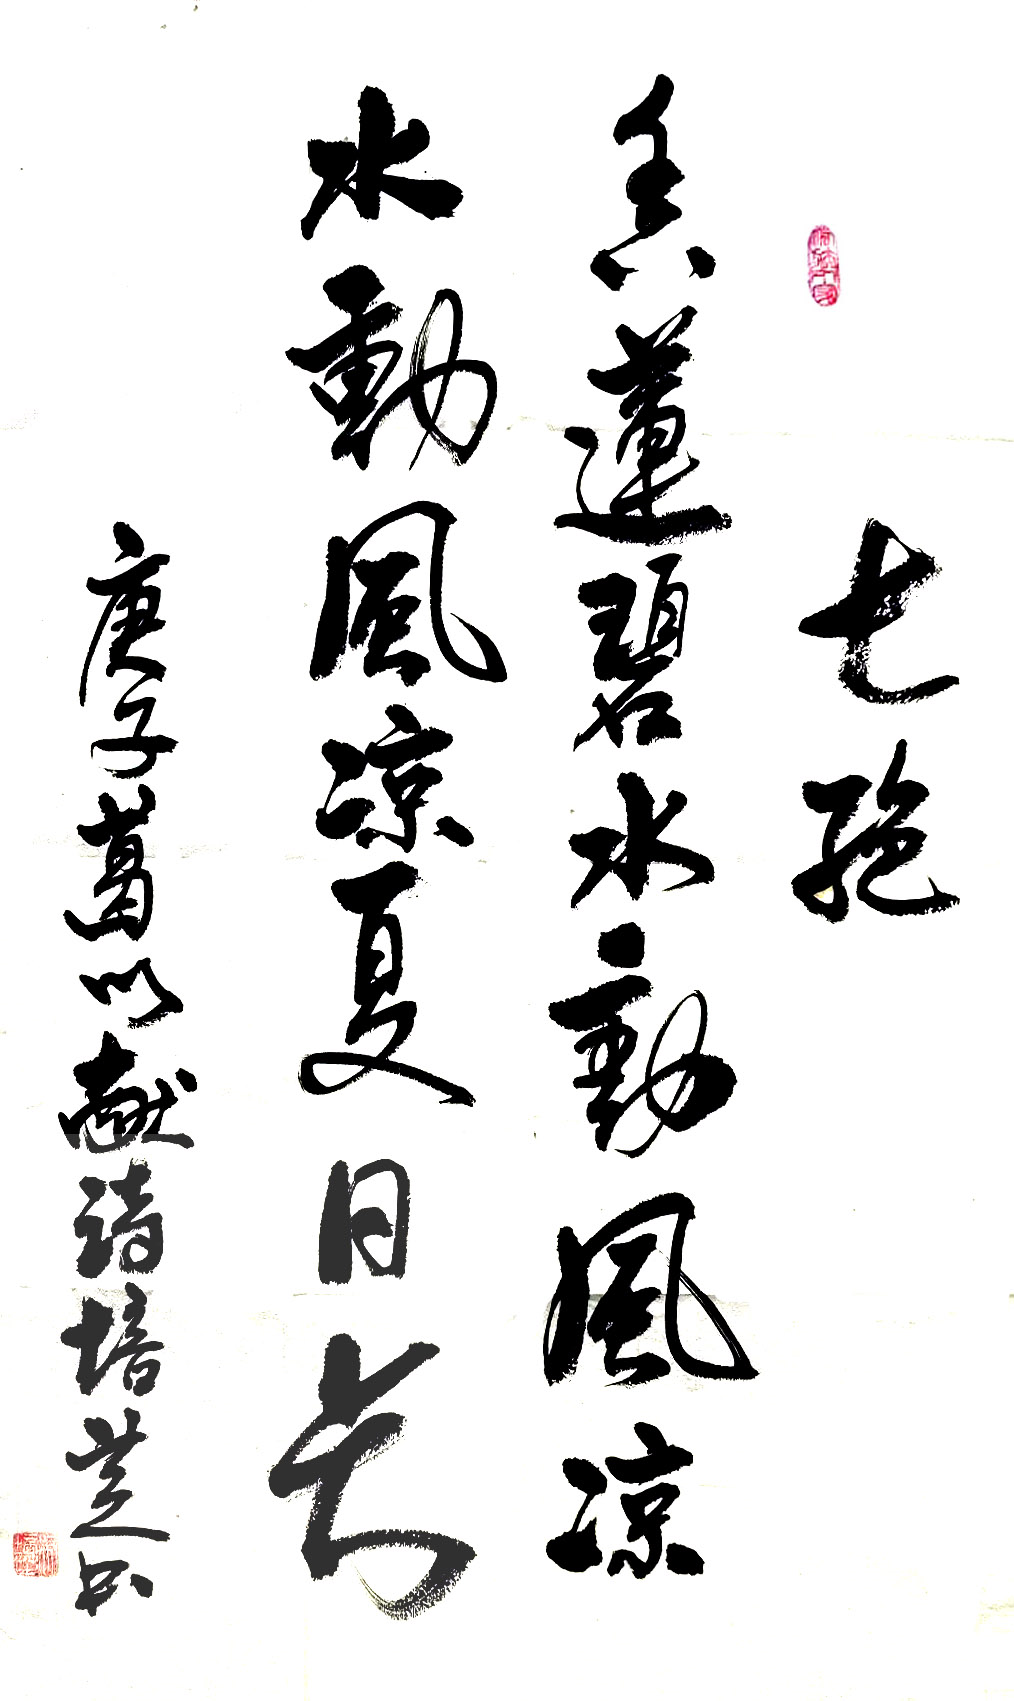 七絶
香蓮碧水動風凉
水動風凉夏日长
庚子葛以献詩培芝书